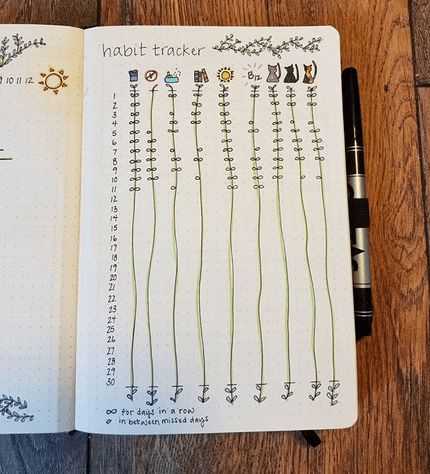 habit tracker
9 10 11 12
B12
1
2
3
4
5
6
7
8
9
10
11
12
13
14
15
16
17
18
19
20
21
22
23
24
25
26
27
28
29
30
for days in a row
in between missed days